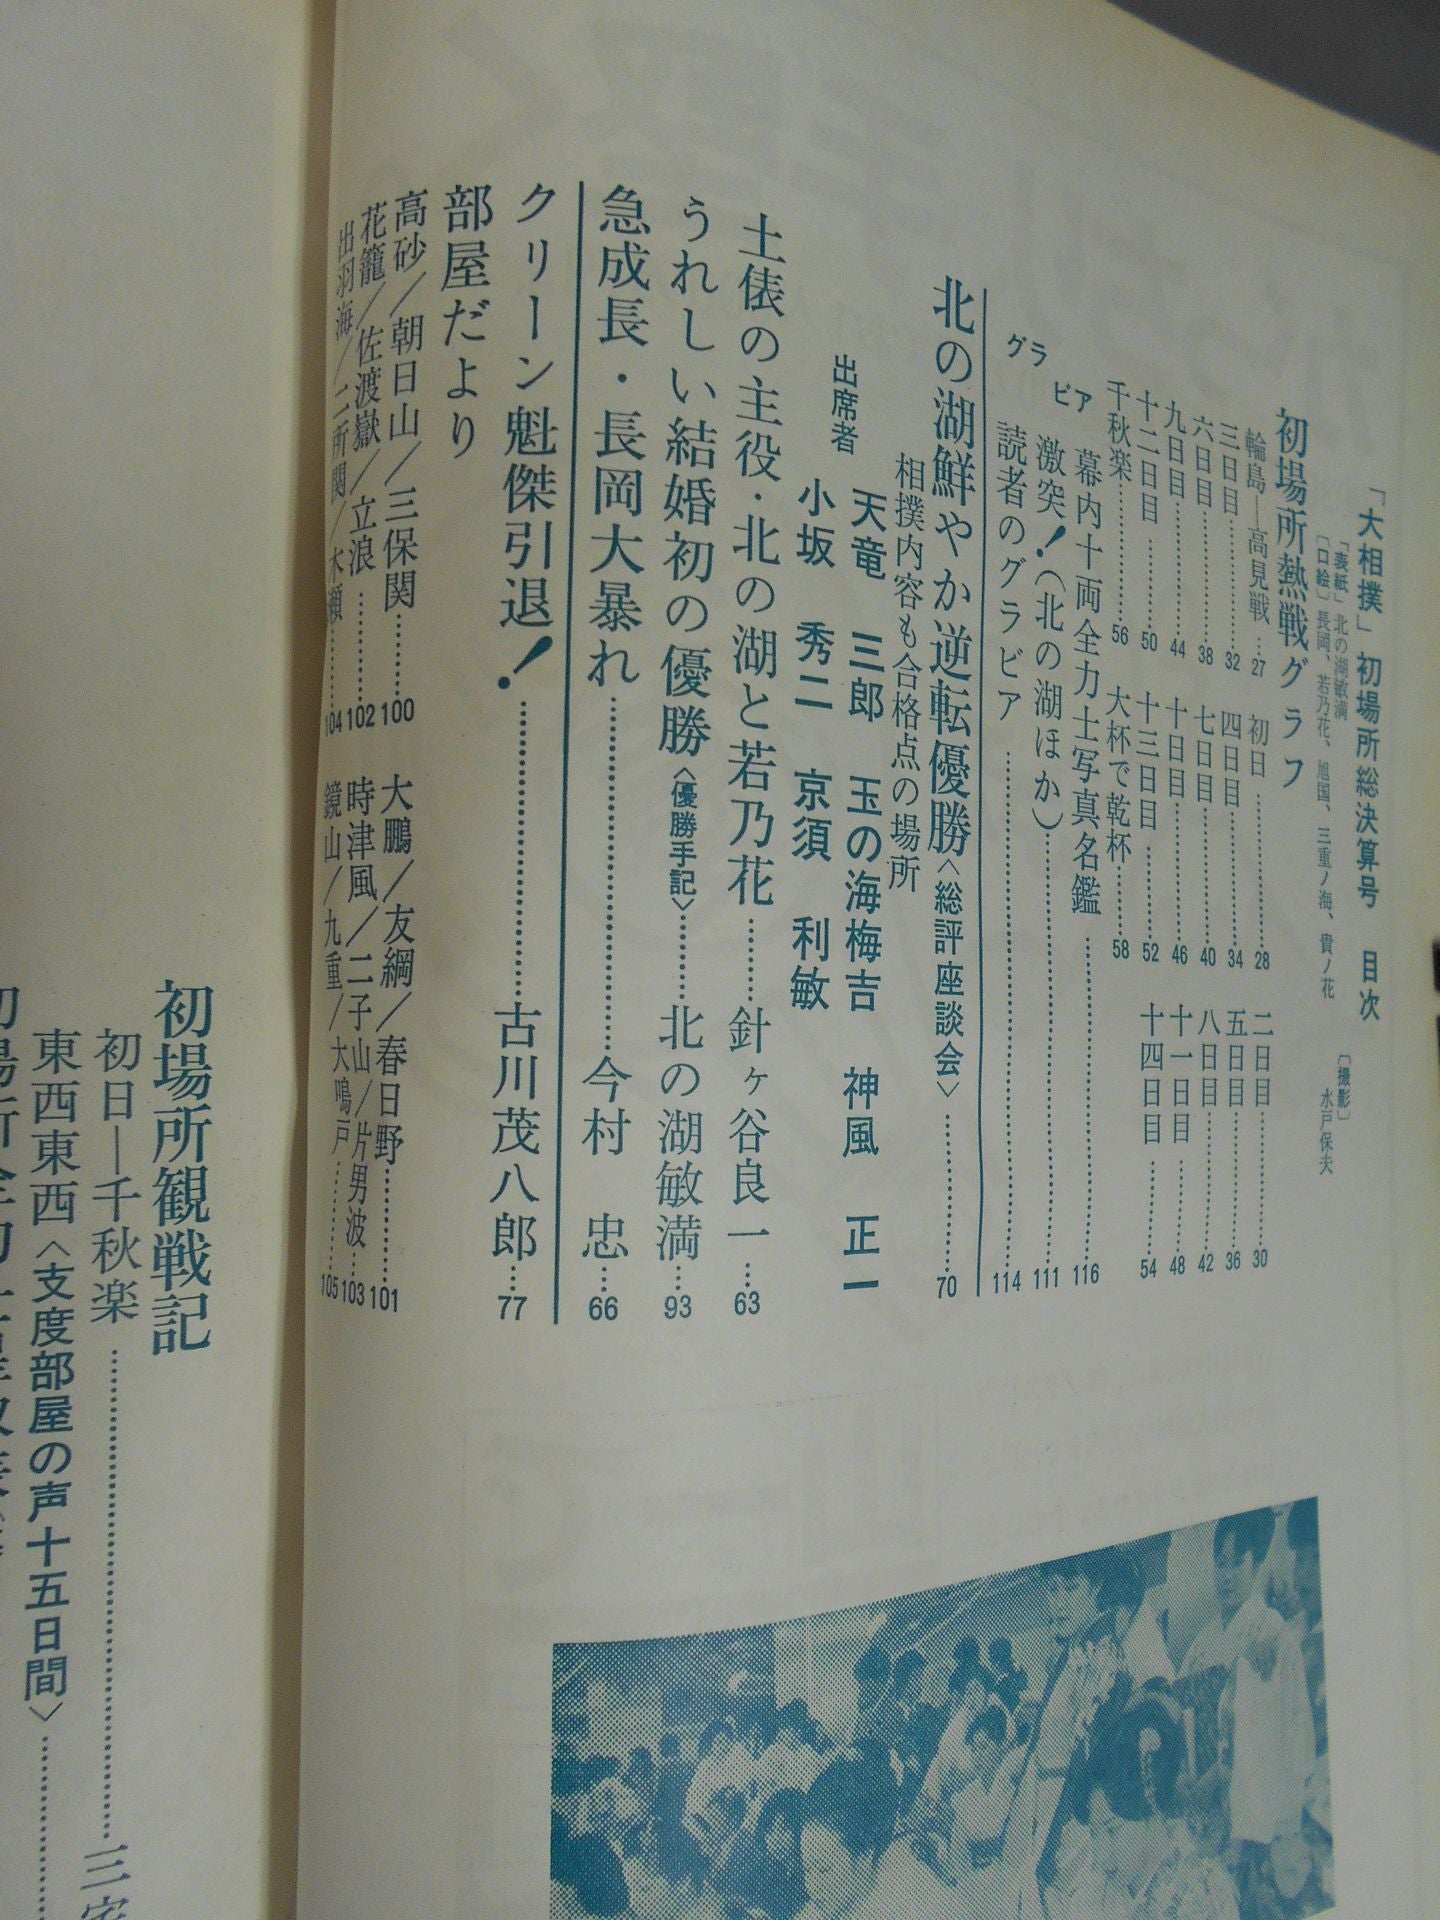 「大相撲」初場所総決算号　目次
「表紙」北の湖敏満
〔口絵〕長岡、若乃花、旭国、三重ノ海、貴ノ花
〔撮影〕
水戸保夫
初場所熱戦グラフ
輪島―高見戦…27　初日…………28　二日目…………30
三日目…………32　四日目…………34　五日目…………36
六日目…………38　七日目…………40　八日目…………42
九日目…………44　十日目…………46　十一日目………48
十二日目………50　十三日目………52　十四日目………54
千秋楽…………56　大杯で乾杯……58
グラビア
幕内十両全力士写真名鑑…………116
激突！（北の湖ほか）…………111
読者のグラビア…………114
北の湖鮮やか逆転優勝〈総評座談会〉…………70
相撲内容も合格点の場所
出席者
天竜　三郎　玉の海梅吉　神風　正一
小坂　秀二　京須　利敏
土俵の主役・北の湖と若乃花……針ヶ谷良一…63
うれしい結婚初の優勝〈優勝手記〉……北の湖敏満…93
急成長・長岡大暴れ…………今村　忠…66
クリーン魁傑引退！…………古川茂八郎…77
部屋だより
高砂／朝日山／三保関……100　大鵬／友綱／春日野……101
花籠／佐渡嶽／立浪……102　時津風／二子山／片男波…103
出羽海／二所関／木瀬……104　鏡山／九重／大鳴戸……105
初場所観戦記
初日―千秋楽…………三宅
東西東西〈支度部屋の声十五日間〉…………